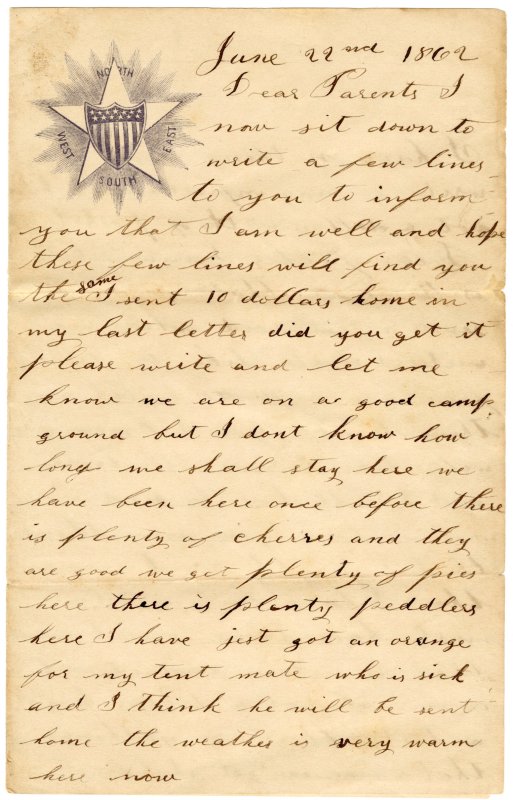 NORTH
WEST
EAST
SOUTH
June 22nd 1862
Dear Parents I
now sit down to
write a few lines
to you to inform
you that I am well and hope
these few lines will find you
the same I sent 10 dollars home in
my last letter did you get it
please write and let me
know we are on a good camp
ground but I dont know how
long we shall stay here we
have been here once before there
is plenty of cherres and they
are good we get plenty of pies
here there is plenty peddlers
here I have jest got an orange
for my tent mate who is sick
and I think he will be sent
home the weather is very warm
here now